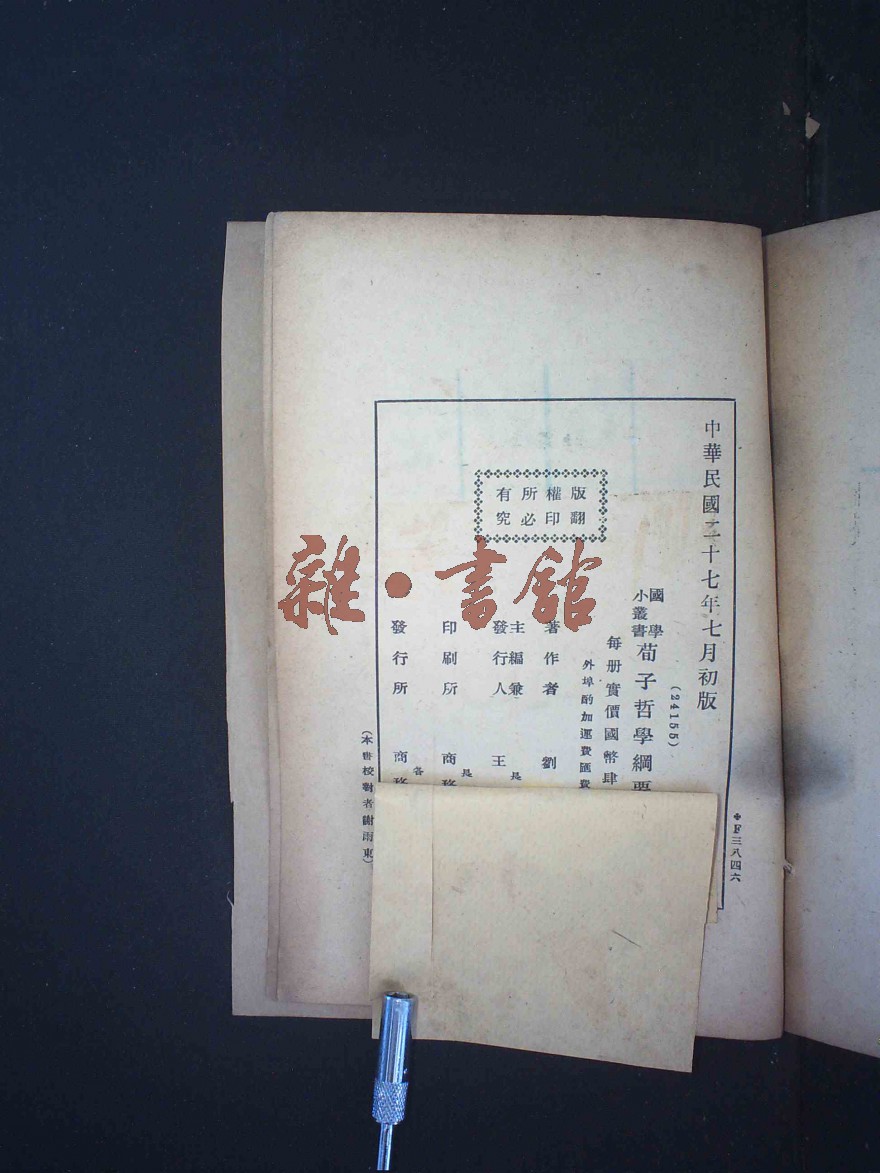 中華民國二十七年七月初版
(24155)
國學小叢書 荀子哲學綱要
每册實價國幣肆
外埠酌加運費匯費
版權所有
翻印必究
著作者 劉
主編兼發行人 王
印刷所 商務
發行所 商務
各
(本書校對者謝雨東)
❖F三八四六
雜·書館